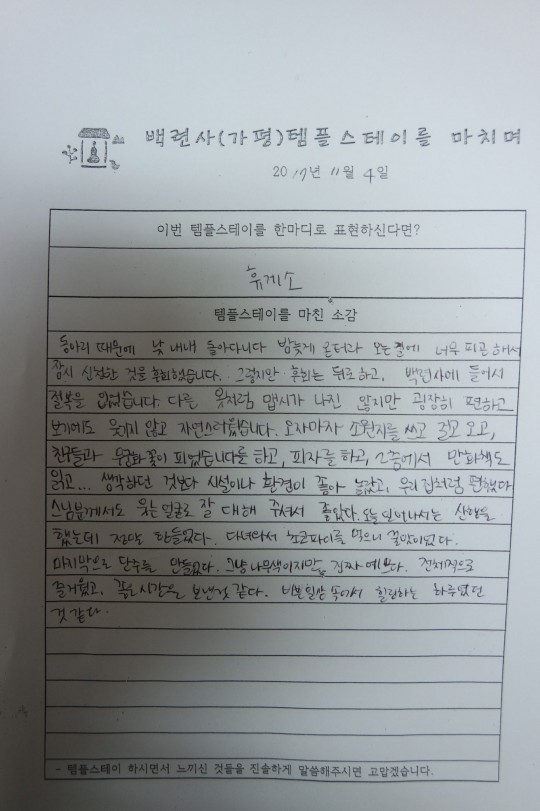 백련사(가평)템플스테이를 마치며
2017년 11월 4일
이번 템플스테이를 한마디로 표현하신다면?
휴게소
템플스테이를 마친 소감
동아리 때문에 낮 내내 돌아다니다 밤늦게 온터라 오는 길에 너무 피곤해서
잠시 신청한 것을 후회했습니다. 그렇지만 후회는 뒤로 하고, 백련사에 들어서
절복을 입었습니다. 다른 옷처럼 맵시가 나진 않지만 굉장히 편하고
보기에도 웃기지 않고 자연스러웠습니다. 오자마자 소원지를 쓰고 걸고 오고,
친구들과 무궁화꽃이 피었습니다를 하고, 피자를 하고, 그중에서 만화책도
읽고... 생각하던 것보다 시설이나 환경이 좋아 놀랐고, 우리집처럼 편했다
스님분께서도 웃는 얼굴로 잘 대해 주셔서 좋았다. 오늘 일어나서는 산행을
했는데 진짜 힘들었다. 다녀와서 초코파이를 먹으니 꿀맛이었다.
마지막으로 단주를 만들었다. 그냥 나무색이지만 진짜 예쁘다. 전체적으로
즐거웠고, 좋은 시간을 보낸것 같다. 바쁜 일상 속에서 힐링하는 하루였던
것 같다.
- 템플스테이 하시면서 느끼신 것들을 진솔하게 말씀해주시면 고맙겠습니다.